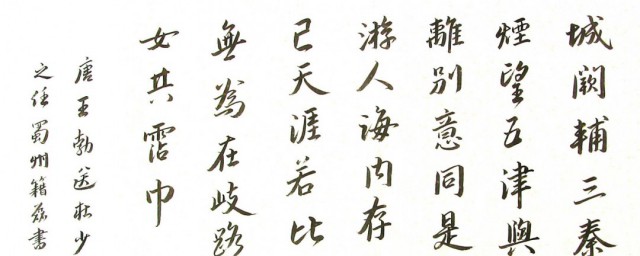 城闕輔三秦
煙望五津與
離別意同是
游人海内存
已天涯若比
無為在岐路
女共霑巾
唐王勃送杜少
之任蜀州籍書